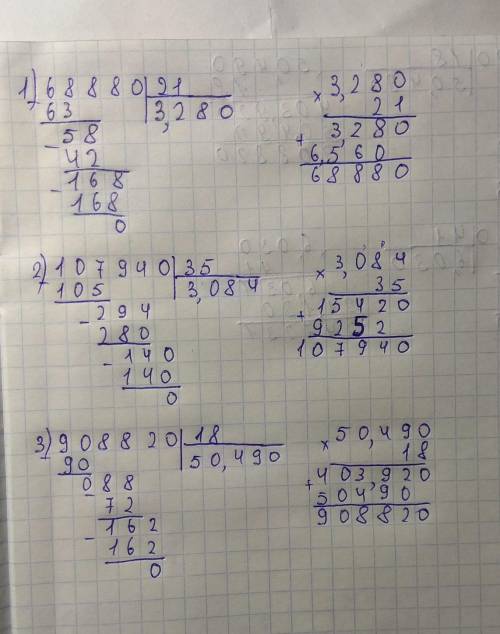 1) 68880 | 21
63 3,280
- 58
42
- 168
168
0
× 3,280
21
+ 3,280
6,560
68880
2) 107940 | 35
105 3,084
- 294
280
- 140
140
0
× 3,084
35
+ 15420
9252
107940
3) 908820 | 18
90 50,490
- 088
72
- 162
162
0
× 50,490
18
+ 403,920
504,90
908820